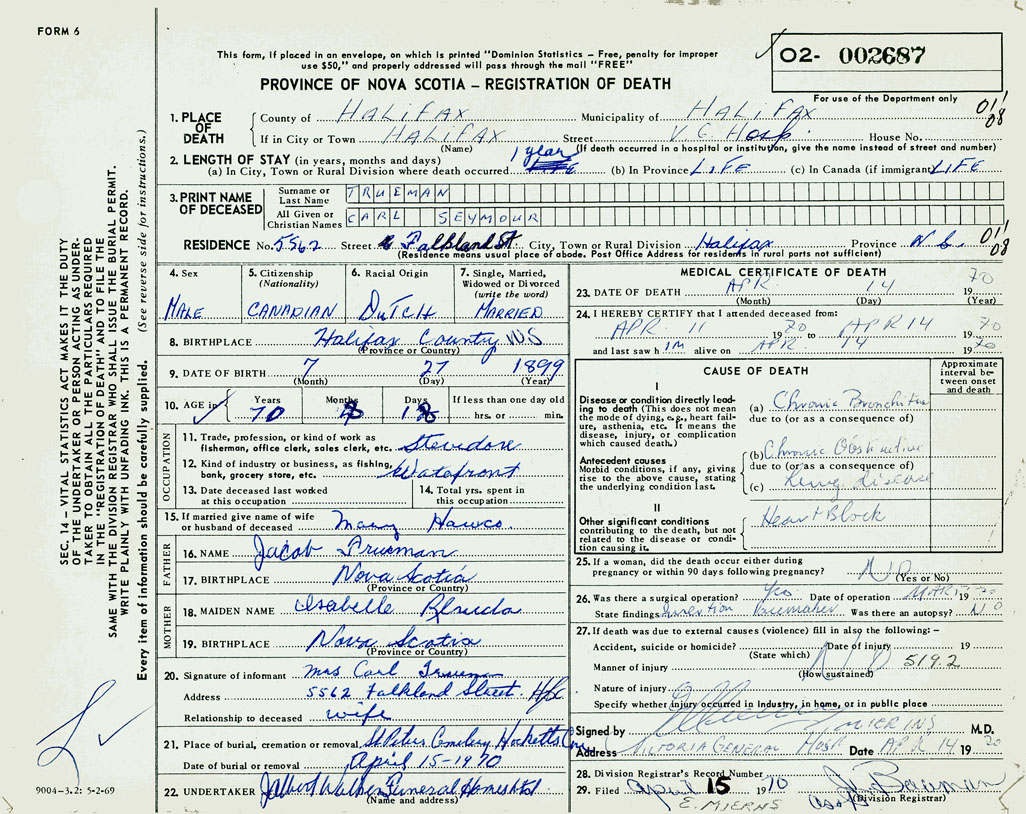 FORM 6
This form, if placed in an envelope, on which is printed "Dominion Statistics – Free, penalty for improper
use $50," and properly addressed will pass through the mail "FREE"
PROVINCE OF NOVA SCOTIA – REGISTRATION OF DEATH
O2- 002687
For use of the Department only
1. PLACE OF DEATH
County of HALIFAX Municipality of HALIFAX 01/08
If in City or Town HALIFAX Street V.G. Hosp. House No.
(Name) (If death occurred in a hospital or institution, give the name instead of street and number)
2. LENGTH OF STAY (in years, months and days) 1 year
(a) In City, Town or Rural Division where death occurred (b) In Province LIFE (c) In Canada (if immigrant) LIFE
3. PRINT NAME OF DECEASED
Surname or Last Name TRUEMAN
All Given or Christian Names CARL SEYMOUR
RESIDENCE No. 5562 Street Falkland St. City, Town or Rural Division Halifax Province 01/08
(Residence means usual place of abode. Post Office Address for residents in rural parts not sufficient)
4. Sex
MALE
5. Citizenship (Nationality)
CANADIAN
6. Racial Origin
DUTCH
7. Single, Married, Widowed or Divorced (write the word)
MARRIED
8. BIRTHPLACE Halifax Country NS
(Province or Country)
9. DATE OF BIRTH 7 27 1899
(Month) (Day) (Year)
10. AGE in Years 70 Months Days If less than one day old
hrs. or min.
OCCUPATION
11. Trade, profession, or kind of work as
fisherman, office clerk, sales clerk, etc. Stevidore
12. Kind of industry or business, as fishing,
bank, grocery store, etc. Watefront
13. Date deceased last worked
at this occupation
14. Total yrs. spent in
this occupation
15. If married give name of wife
or husband of deceased Mary Hawco
FATHER
16. NAME Jacob Trueman
17. BIRTHPLACE Nova Scotia
(Province or Country)
MOTHER
18. MAIDEN NAME Isabelle
19. BIRTHPLACE Nova Scotia
(Province or Country)
20. Signature of informant Mrs Carl Trueman
Address 5562 Falkland Street Hfx
Relationship to deceased wife
21. Place of burial, cremation or removal St Peters Cemetery
Date of burial or removal April 15-1970
22. UNDERTAKER Funeral Homes Ltd
(Name and address)
MEDICAL CERTIFICATE OF DEATH
23. DATE OF DEATH APR. 14 1970
(Month) (Day) (Year)
24. I HEREBY CERTIFY that I attended deceased from:
APR 11 1970 to APR 14 1970
and last saw h IM alive on APR 14 1970
CAUSE OF DEATH
Approximate interval between onset and death
I
Disease or condition directly leading
to death (This does not mean
the mode of dying, e.g., heart failure,
asthenia, etc. It means the
disease, injury, or complication
which caused death.)
(a) Chronic Bronchitis
due to (or as a consequence of)
Antecedent causes
Morbid conditions, if any, giving
rise to the above cause, stating
the underlying condition last.
(b) Chronic Obstructive
due to (or as a consequence of)
(c) Lung disease
II
Other significant conditions
contributing to the death, but not
related to the disease or condition
causing it.
Heart Block
25. If a woman, did the death occur either during
pregnancy or within 90 days following pregnancy? NO
(Yes or No)
26. Was there a surgical operation? Yes Date of operation MAR 1970
State findings Insertion Pacemaker Was there an autopsy? NO
27. If death was due to external causes (violence) fill in also the following: –
Accident, suicide or homicide? Date of injury 19
(State which)
Manner of injury 519.2
(How sustained)
Nature of injury
Specify whether injury occurred in Industry, in home, or in public place
Signed by MIERINS M.D.
Address VICTORIA GENERAL HOSP. Date APR 14 1970
28. Division Registrar's Record Number
29. Filed April 15 1970 Bauman
(Division Registrar)
E. MIERNS
SEC. 14 – VITAL STATISTICS ACT MAKES IT THE DUTY
OF THE UNDERTAKER OR PERSON ACTING AS UNDERTAKER
TO OBTAIN ALL THE PARTICULARS REQUIRED
IN THE "REGISTRATION OF DEATH" AND TO FILE THE
SAME WITH THE DIVISION REGISTRAR WHO SHALL ISSUE THE BURIAL PERMIT.
WRITE PLAINLY WITH UNFADING INK. THIS IS A PERMANENT RECORD.
Every item of information should be carefully supplied. (See reverse side for instructions.)
9004-3.2: 5-2-69